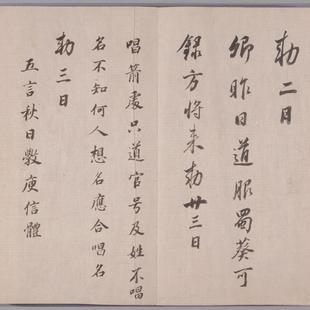 勅二日
卿昨日道服蜀葵可
録方将来勅廿三日
唱箭處只道官号及姓不唱
名不知何人想名應合唱名
勅三日
五言秋日斅庾信體